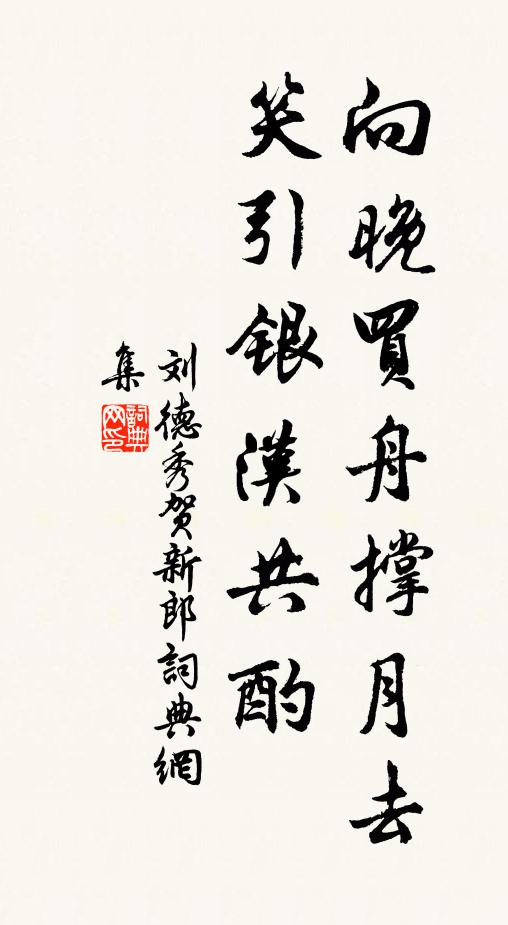 向晚買舟撐月去
笑引銀漢共酌
刘德秀贺新郎詞典網
集
詞典
网印